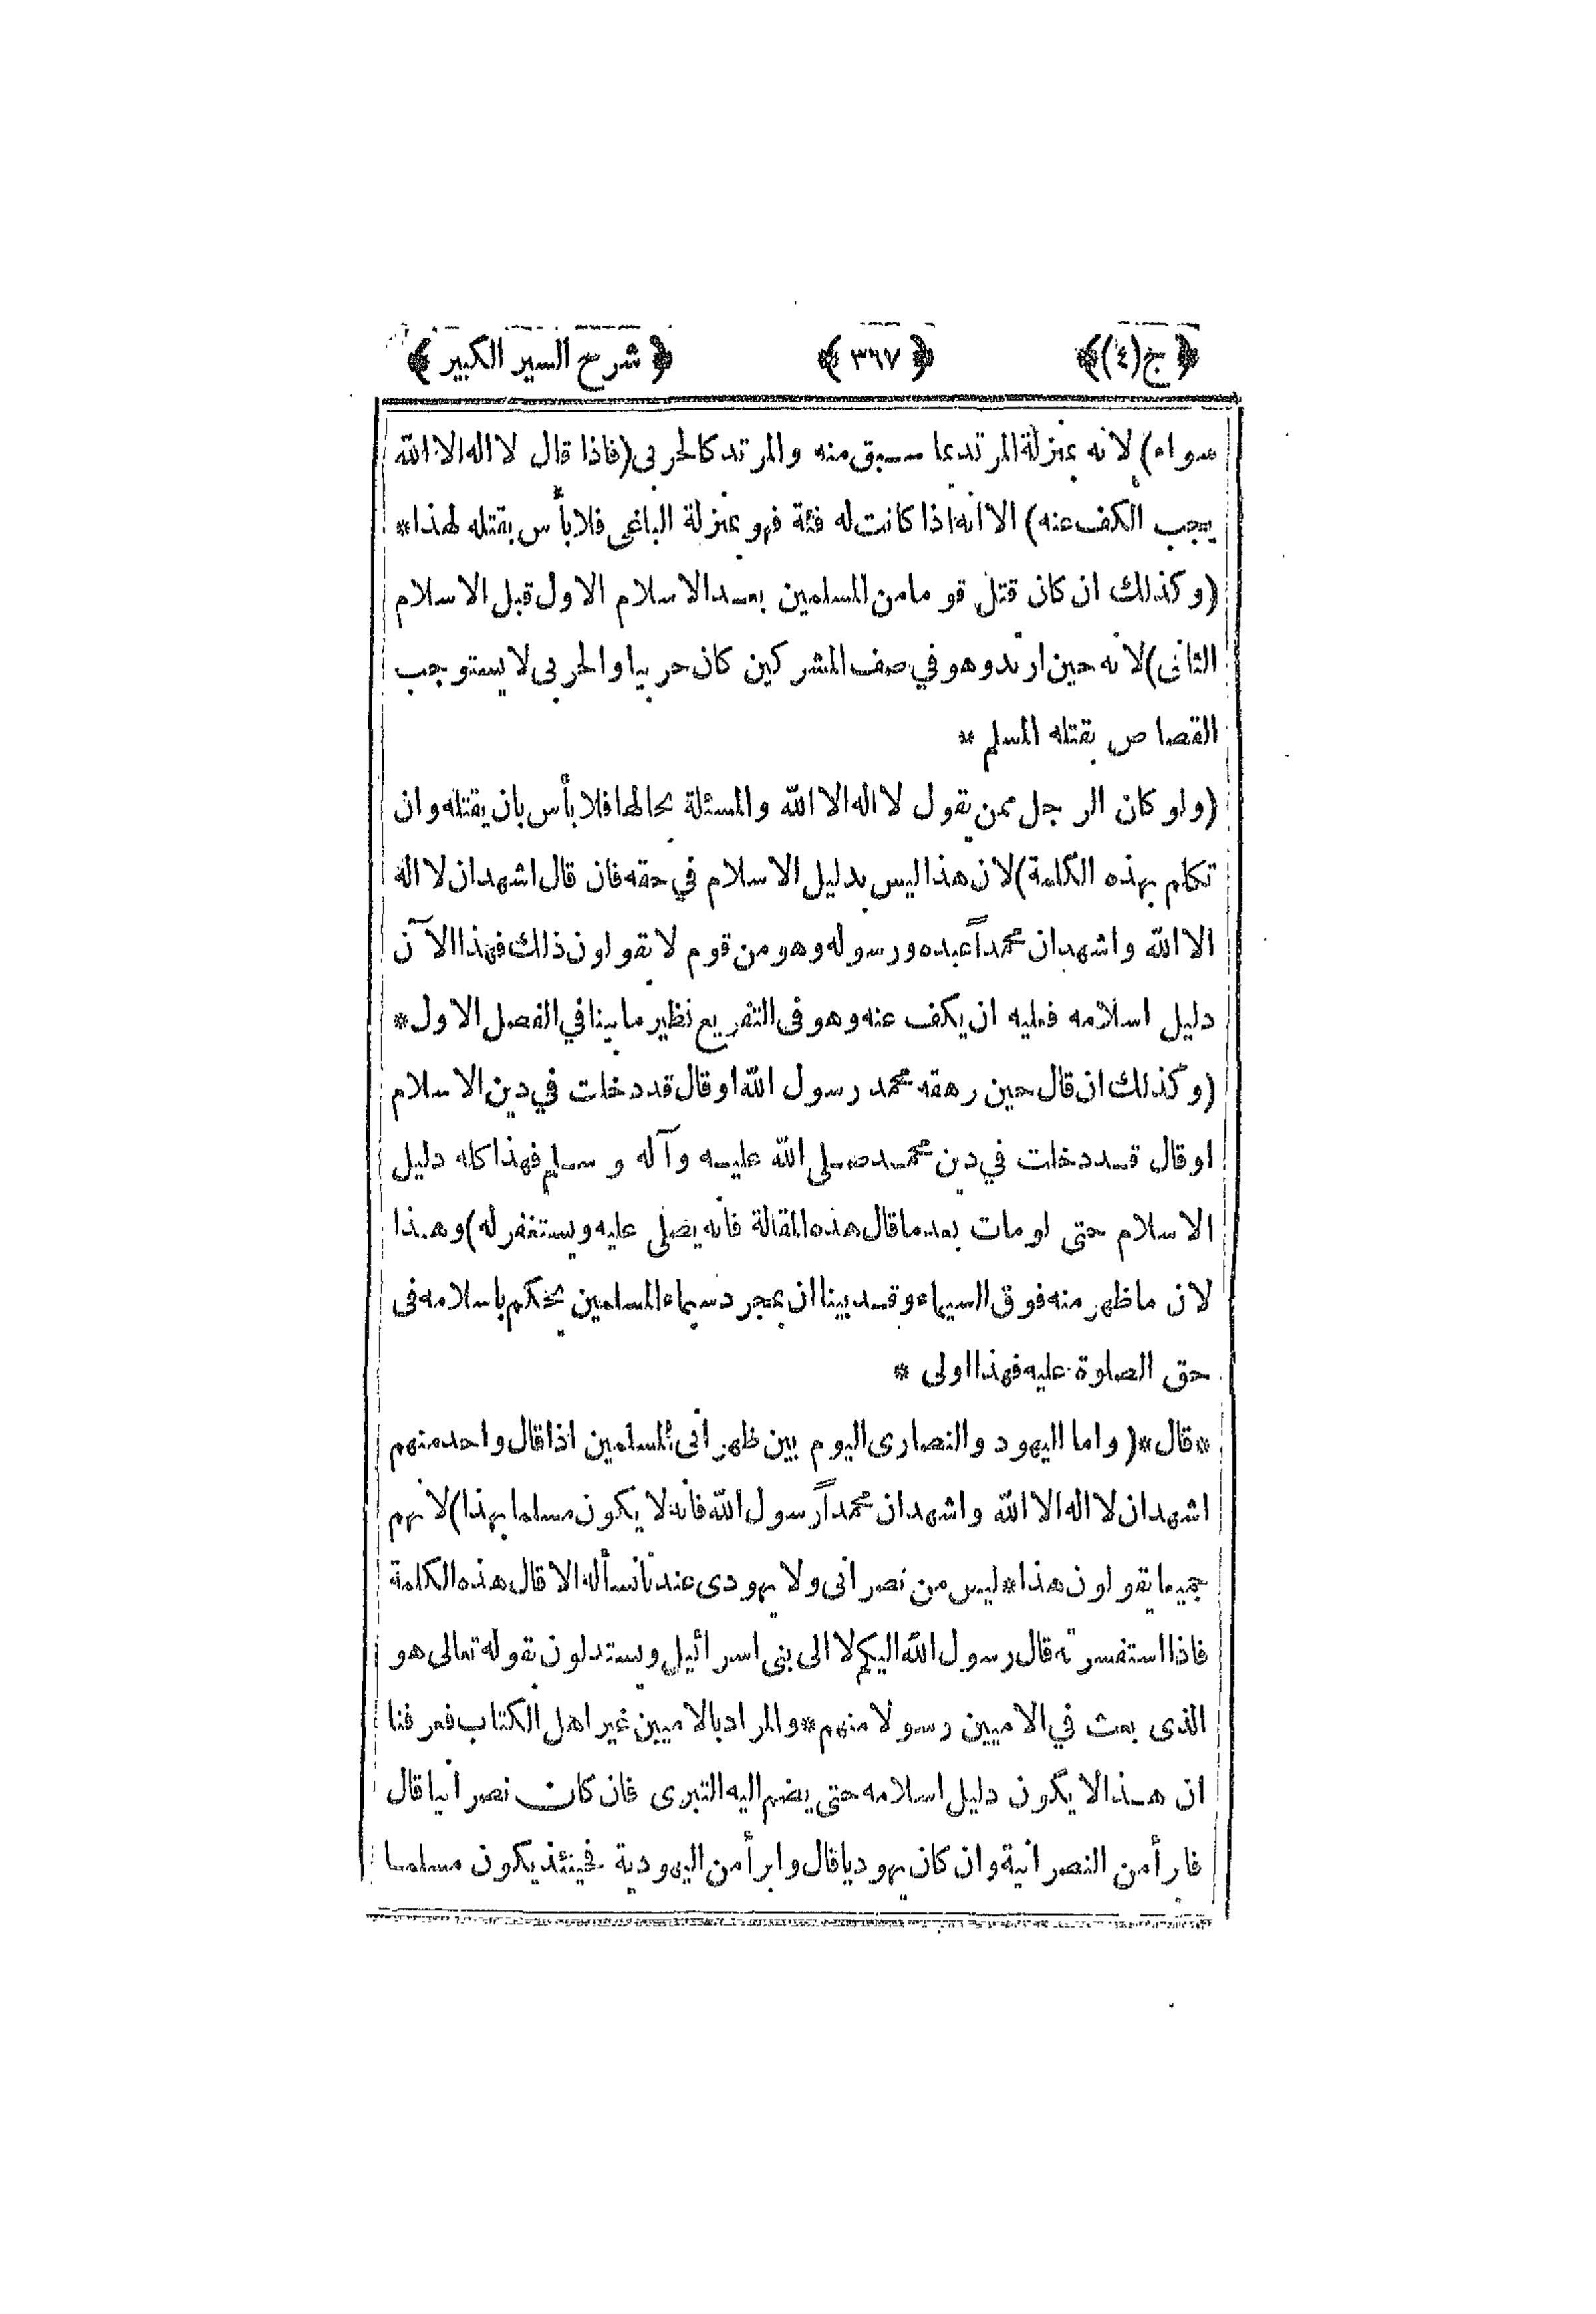 ﴿ ج(٤) ﴾ ﴿ ٣٦٧ ﴾ ﴿ شرح السير الكبير ﴾
سواء) لانه بمنزلة المرتد بما سبق منه والمرتد كالحربى (فاذا قال لا اله الا الله
يجب الكف عنه) الا انه اذا كانت له فئة فهو بمنزلة الباغى فلا بأس بقتله لهذا *
(وكذلك ان كان قتل قوما من المسلمين بعد الاسلام الاول قبل الاسلام
الثانى) لانه حين ارتد وهو في صف المشركين كان حربيا والحربى لا يستوجب
القصاص بقتله المسلم *
(ولو كان الرجل ممن يقول لا اله الا الله والمسئلة بحالها فلا بأس بان يقتله وان
تكلم بهذه الكلمة) لان هذا ليس بدليل الاسلام في حقه فان قال اشهد ان لا اله
الا الله واشهد ان محمداً عبده ورسوله وهو من قوم لا يقولون ذلك فهذا الآن
دليل اسلامه فعليه ان يكف عنه وهو فى التفريع نظير ما بينا في الفصل الاول *
(وكذلك ان قال حين رهقه محمد رسول الله او قال قد دخلت في دين الاسلام
او قال قد دخلت في دين محمد صلى الله عليه وآله و سلم فهذا كله دليل
الاسلام حتى لو مات بعد ما قال هذه المقالة فانه يصلى عليه ويستغفر له) وهذا
لان ما ظهر منه فوق السيماء وقد بينا ان بمجرد سيماء المسلمين يحكم باسلامه فى
حق الصلوة عليه فهذا اولى *
* قال * (واما اليهود والنصارى اليوم بين ظهرانى المسلمين اذا قال واحد منهم
اشهد ان لا اله الا الله واشهد ان محمداً رسول الله فانه لا يكون مسلما بهذا) لانهم
جميعا يقولون هذا * ليس من نصرانى ولا يهودى عندنا نسأله الا قال هذه الكلمة
فاذا استفسرته قال رسول الله اليكم لا الى بنى اسرائيل ويستدلون بقوله تعالى هو
الذى بعث في الاميين رسولا منهم * والمراد بالاميين غير اهل الكتاب فعرفنا
ان هذا لا يكون دليل اسلامه حتى يضم اليه التبرى فان كان نصرانيا قال
فابرأ من النصرانية وان كان يهوديا قال وابرأ من اليهودية فحينئذ يكون مسلما